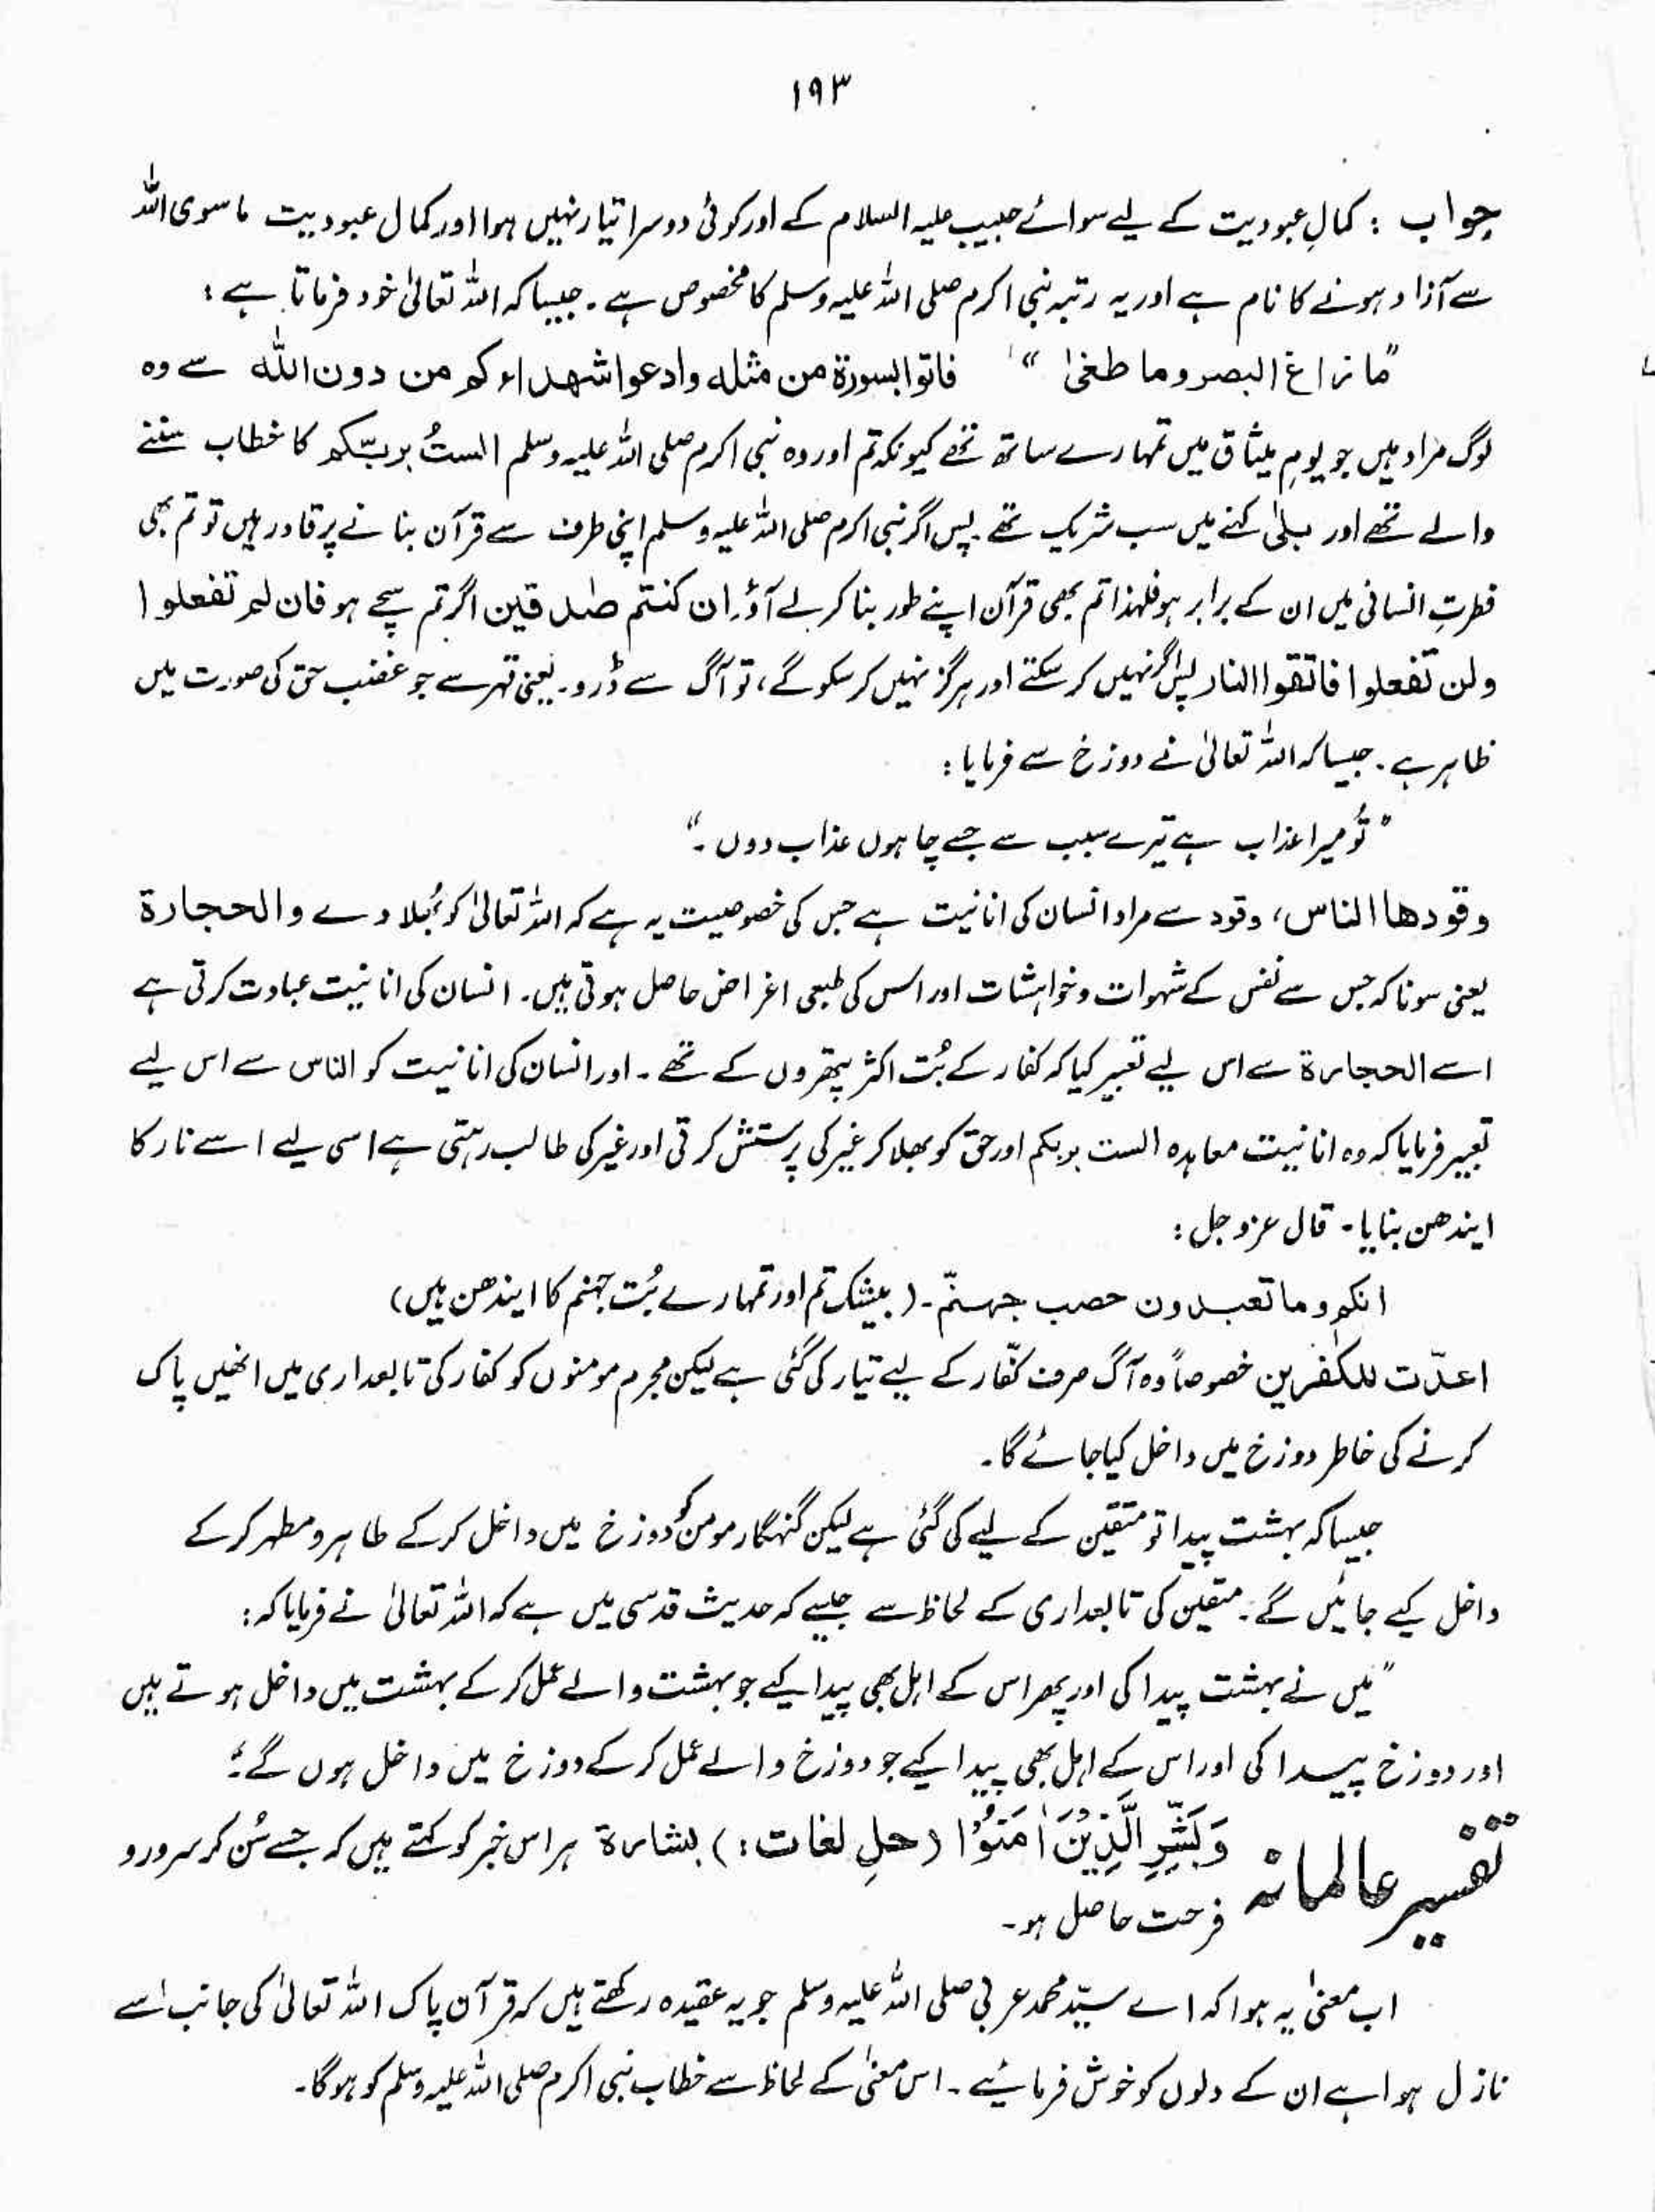 ۱۹۳
جواب : کمالِ عبودیت کے لیے سوائے حبیب علیہ السلام کے اور کوئی دوسرا تیار نہیں ہوا اور کمال عبودیت ماسوی اللہ
سے آزاد ہونے کا نام ہے اور یہ رتبہ نبی اکرم صلی اللہ علیہ وسلم کا مخصوص ہے ۔ جیسا کہ اللہ تعالیٰ خود فرماتا ہے :
"ما زاغ البصر وما طغیٰ" فاتوا بسورة من مثله وادعوا شهداءكم من دون الله سے وہ
لوگ مراد ہیں جو یومِ میثاق میں تمہارے ساتھ تھے کیونکہ تم اور وہ نبی اکرم صلی اللہ علیہ وسلم الستُ بربّکم کا خطاب سننے
والے تھے اور بلیٰ کہنے میں سب شریک تھے ۔ پس اگر نبی اکرم صلی اللہ علیہ وسلم اپنی طرف سے قرآن بنانے پر قادر ہیں تو تم بھی
فطرتِ انسانی میں ان کے برابر ہو فلہذا تم بھی قرآن اپنے طور بنا کر لے آؤ۔ ان کنتم صٰدقین اگر تم سچے ہو فان لم تفعلوا
ولن تفعلوا فاتقوا النار پس اگر نہیں کر سکتے اور ہرگز نہیں کر سکو گے، تو آگ سے ڈرو۔ یعنی قہر سے جو غضب حق کی صورت میں
ظاہر ہے ۔ جیسا کہ اللہ تعالیٰ نے دوزخ سے فرمایا :
"تُو میرا عذاب ہے تیرے سبب سے جسے چاہوں عذاب دوں ۔"
وقودها الناس، وقود سے مراد انسان کی انانیت ہے جس کی خصوصیت یہ ہے کہ اللہ تعالیٰ کو بُھلا دے والحجارة
یعنی سونا کہ جس سے نفس کے شہوات و خواہشات اور اس کی طبعی اغراض حاصل ہوتی ہیں۔ انسان کی انانیت عبادت کرتی ہے
اسے الحجارة سے اس لیے تعبیر کیا کہ کفار کے بُت اکثر پتھروں کے تھے ۔ اور انسان کی انانیت کو الناس سے اس لیے
تعبیر فرمایا کہ وہ انانیت معاہدہ الست بربکم اور حق کو بھلا کر غیر کی پرستش کرتی اور غیر کی طالب رہتی ہے اسی لیے اسے نار کا
ایندھن بنایا ۔ قال عزوجل :
انکم وما تعبدون حصب جہنّم ۔ (بیشک تم اور تمہارے بُت جہنم کا ایندھن ہیں)
اعدّت للکٰفرین خصوصاً وہ آگ صرف کفّار کے لیے تیار کی گئی ہے لیکن مجرم مومنوں کو کفار کی تابعداری میں انھیں پاک
کرنے کی خاطر دوزخ میں داخل کیا جائے گا۔
جیسا کہ بہشت پیدا تو متقین کے لیے کی گئی ہے لیکن گنہگار مومن کو دوزخ میں داخل کرکے طاہر و مطہر کرکے
داخل کیے جائیں گے ۔ متقین کی تابعداری کے لحاظ سے جیسے کہ حدیث قدسی میں ہے کہ اللہ تعالیٰ نے فرمایا کہ :
"میں نے بہشت پیدا کی اور پھر اس کے اہل بھی پیدا کیے جو بہشت والے عمل کرکے بہشت میں داخل ہوتے ہیں
اور دوزخ پیدا کی اور اس کے اہل بھی پیدا کیے جو دوزخ والے عمل کرکے دوزخ میں داخل ہوں گے ۔"
تفسیر عالمانہ وَبَشِّرِ الَّذِیْنَ اٰمَنُوْا (حلِ لغات :) بشارة ہر اس خبر کو کہتے ہیں کہ جسے سُن کر سرور و
فرحت حاصل ہو۔
اب معنیٰ یہ ہوا کہ اے سیّد محمد عربی صلی اللہ علیہ وسلم جو یہ عقیدہ رکھتے ہیں کہ قرآن پاک اللہ تعالیٰ کی جانب سے
نازل ہوا ہے ان کے دلوں کو خوش فرمائیے ۔ اس معنیٰ کے لحاظ سے خطاب نبی اکرم صلی اللہ علیہ وسلم کو ہوگا۔